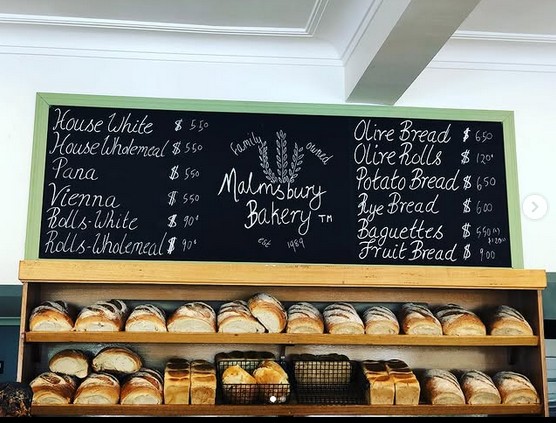 House White $ 5.50
House Wholemeal $ 5.50
Pana $ 5.50
Vienna $ 5.50
Rolls-White $ 90¢
Rolls-Wholemeal $ 90¢
Family owned
Malmsbury
Bakery TM
est 1989
Olive Bread $ 6.50
Olive Rolls $ 1.20
Potato Bread $ 6.50
Rye Bread $ 6.00
Baguettes $ 5.50
Fruit Bread $ 9.00